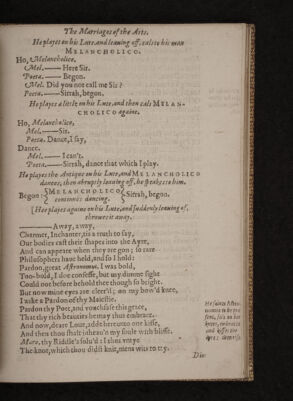 The Marriages of the Arts.
He playes on his Lute, and leaving off, cals to his man
MELANCHOLICO.
Ho, Melancholico.
Mel.—— Here Sir.
Poeta.—— Begon.
Mel. Did you not call me Sir?
Poeta.—— Sirrah, begon.
He playes a little on his Lute, and then cals MELAN-
CHOLICO againe.
Ho, Melancholico.
Mel.—— Sir.
Poeta. Dance, I say,
Dance.
Mel.—— I can't.
Poeta.—— Sirrah, dance that which I play.
He playes the Antique on his Lute, and MELANCHOLICO
dances, then abruptly leaving off, he speakes to him.
Begon: { MELANCHOLICO continues dancing. } Sirrah, begon.
[He playes againe on his Lute, and suddenly leaving off,
throwes it away.
—— Away, away,
Charmer, Inchanter, tis a truth to say,
Our bodies cast their shapes into the Ayre,
And can appeare when they are gon; so rare
Philosophers haue held, and so I hold:
Pardon, great Astronomus. I was bold,
Too-bold, I doe confesse, but my dimme sight
Could not before behold thee though so bright.
But now mine eyes are cleer'd; on my bow'd knee,
I take a Pardon of thy Maiestie.
Pardon thy Poet, and vouchsafe this grace,
That thy rich beauties he may thus embrace.
And now, deare Loue, adde hereunto one kisse,
And then thou shalt inheau'n my soule with blisse.
More, thy Riddle's solu'd: I thus vntye
The knot, which thou didst knit, mens wits to try.
He faines Astro-
nomia to be pre
sent, fals on his
knees, embraces
and kisses the
Ayre
Die